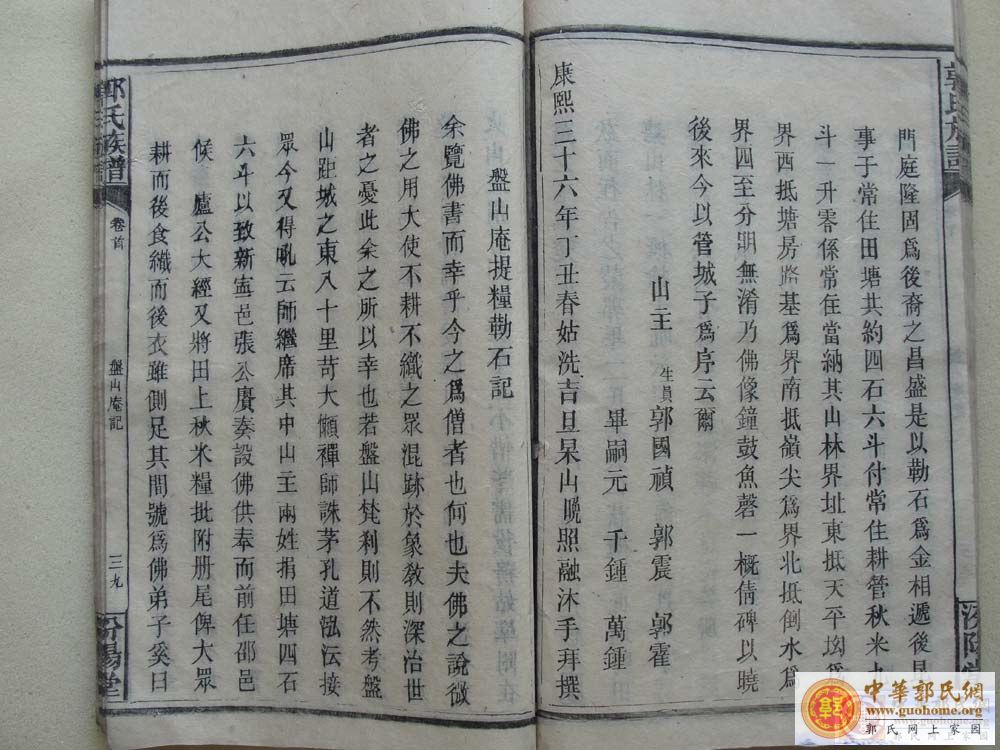 門庭隆固爲後裔之昌盛是以勒石爲金相遞後
事于常住田塘共約四石六斗付常住耕管秋米
斗一升零係常住當納其山林界址東抵天平坳
界西抵塘房路基爲界南抵嶺尖爲界北抵倒水爲
界四至分明無淆乃佛像鐘鼓魚磬一概倩碑以曉
後來今以管城子爲序云爾
山主 生員 郭國禎 郭震 郭霍
畢嗣元 千鍾 萬鍾
康熙三十六年丁丑春姑洗吉旦杲山晚照融沐手拜撰
郭氏族譜
盤山庵提糧勒石記
余覽佛書而幸乎今之爲僧者也何也夫佛之說微
佛之用大使不耕不織之眾混跡於象敎則深治世
者之憂此余之所以幸也若盤山梵刹則不然考盤
山距城之東入十里苛大懶禪師誅茅孔道泓沄接
眾今又得吼云師繼席其中山主兩姓捐田塘四石
六斗以致新寧邑張公賡奏設佛供奉而前任邵邑
候廬公大經又將田上秋米糧批附册尾俾大眾
耕而後食織而後衣雖側足其間號爲佛弟子奚曰
郭氏族譜
卷首
盤山庵記
三九
汾陽堂
中華郭氏網
www.guohome.org
郭氏网上家园